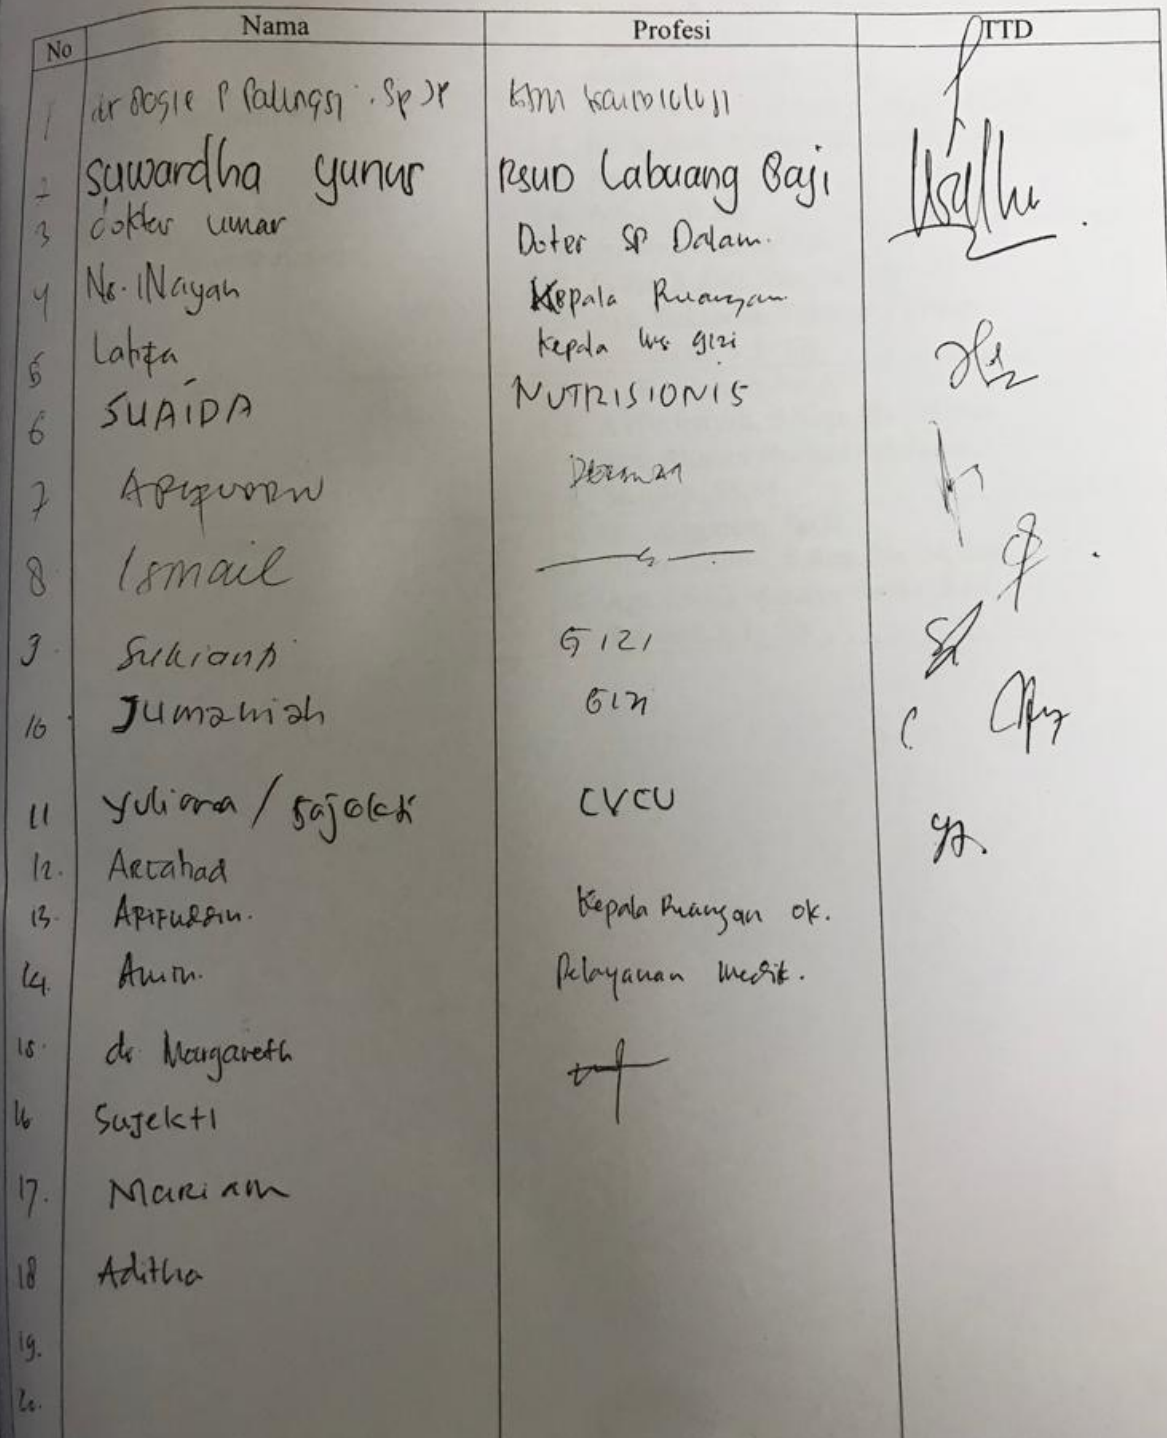 No Nama Profesi TTD
1 dr P Palungsi . Sp JP KSM
2 Suwardha Yunus RSUD Labuang Baji
3 dokter umar Doter SP Dalam.
4 Ns. INayah Kepala Ruangan
5 Kepala Ins gizi
6 SUAIDA NUTRISIONIS
7
8 Ismail
9 Sukianti GIZI
10 Jumaniah GIZI
11 Yuliana / CVCU
12. Arcahad
13. ARIFUDDIN. Kepala Ruangan OK.
14. Amin. Pelayanan Medik.
15. dr Margareth
16 Sujekti
17. Mariam
18 Aditha
19.
20.